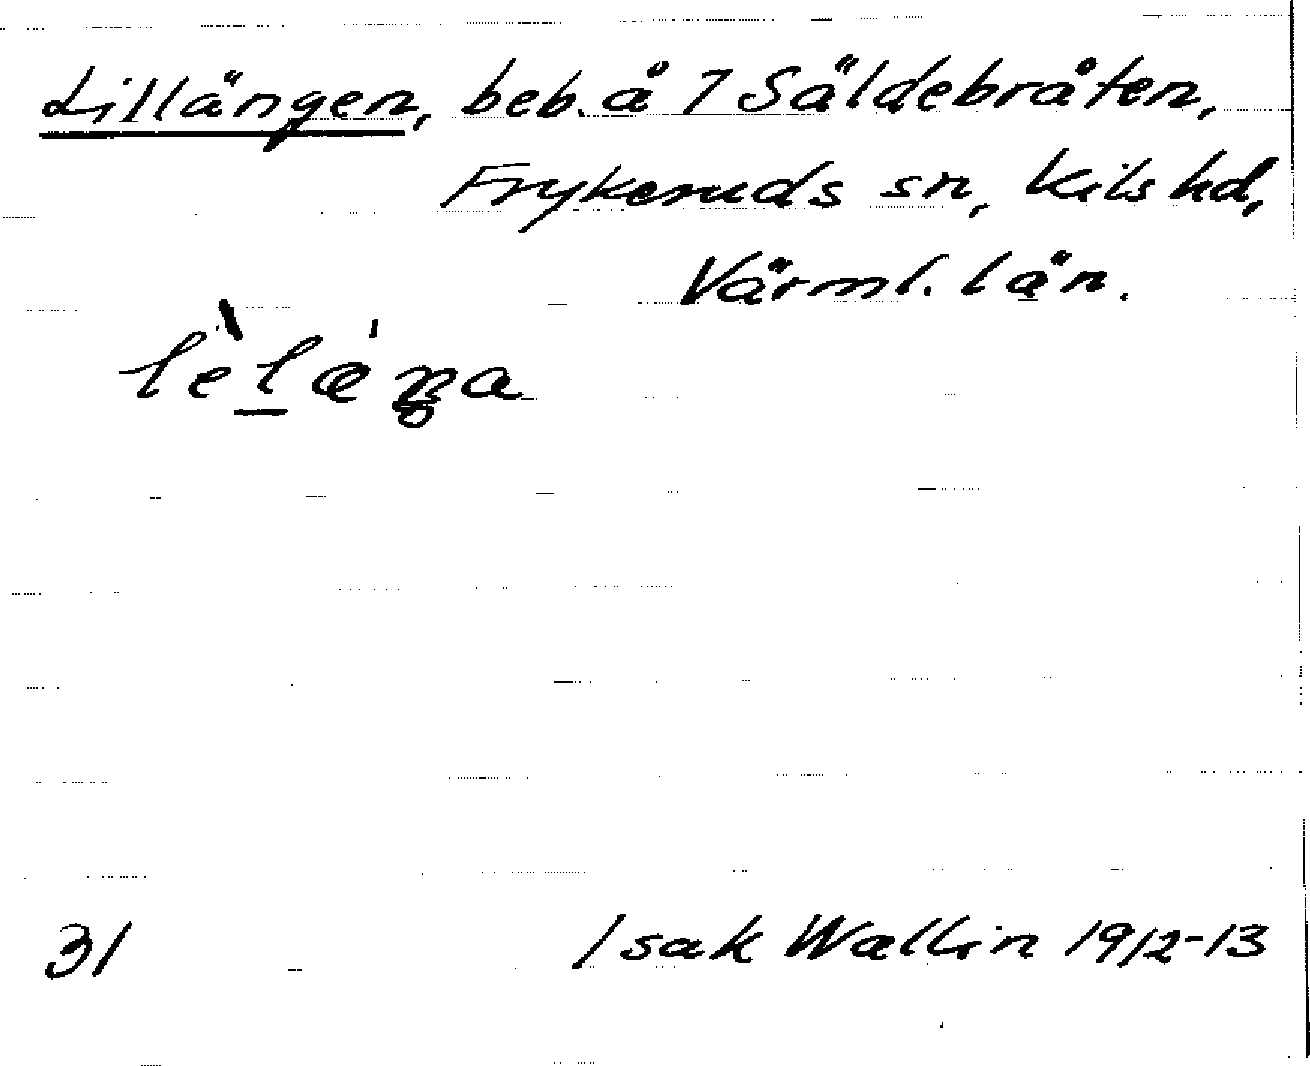 Lillängen, beb. å 7 Säldebråten,
Frykeruds sn, Kils hd,
Värml. län.
lèlæ´ŋa
31
Isak Wallin 1912-13